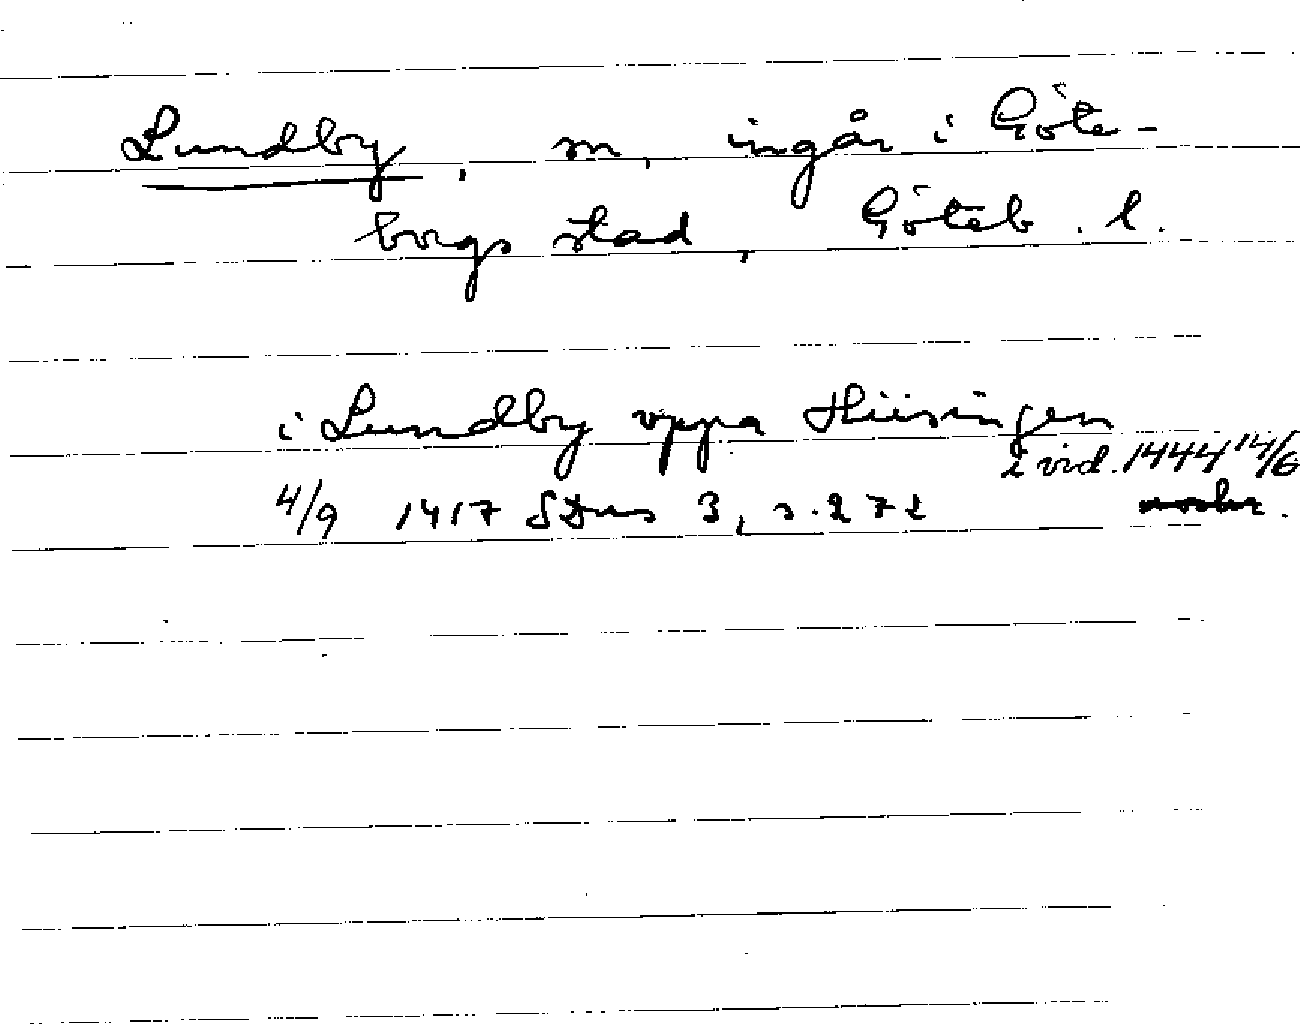 Lundby, sn, ingår i Göte-
borgs stad, Göteb. l.
i Lundby vppa Hiisingen
i vid. 1444 14/6
4/9 1417 SDns 3, s. 272